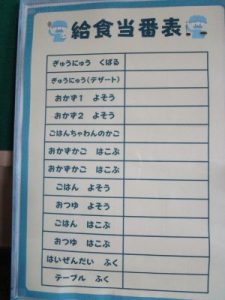 給食当番表
ぎゅうにゅう くばる
ぎゅうにゅう(デザート)
おかず1 よそう
おかず2 よそう
ごはんちゃわんのかご
おかずかご はこぶ
おかずかご はこぶ
ごはん よそう
おつゆ よそう
ごはん はこぶ
おつゆ はこぶ
はいぜんだい ふく
テーブル ふく